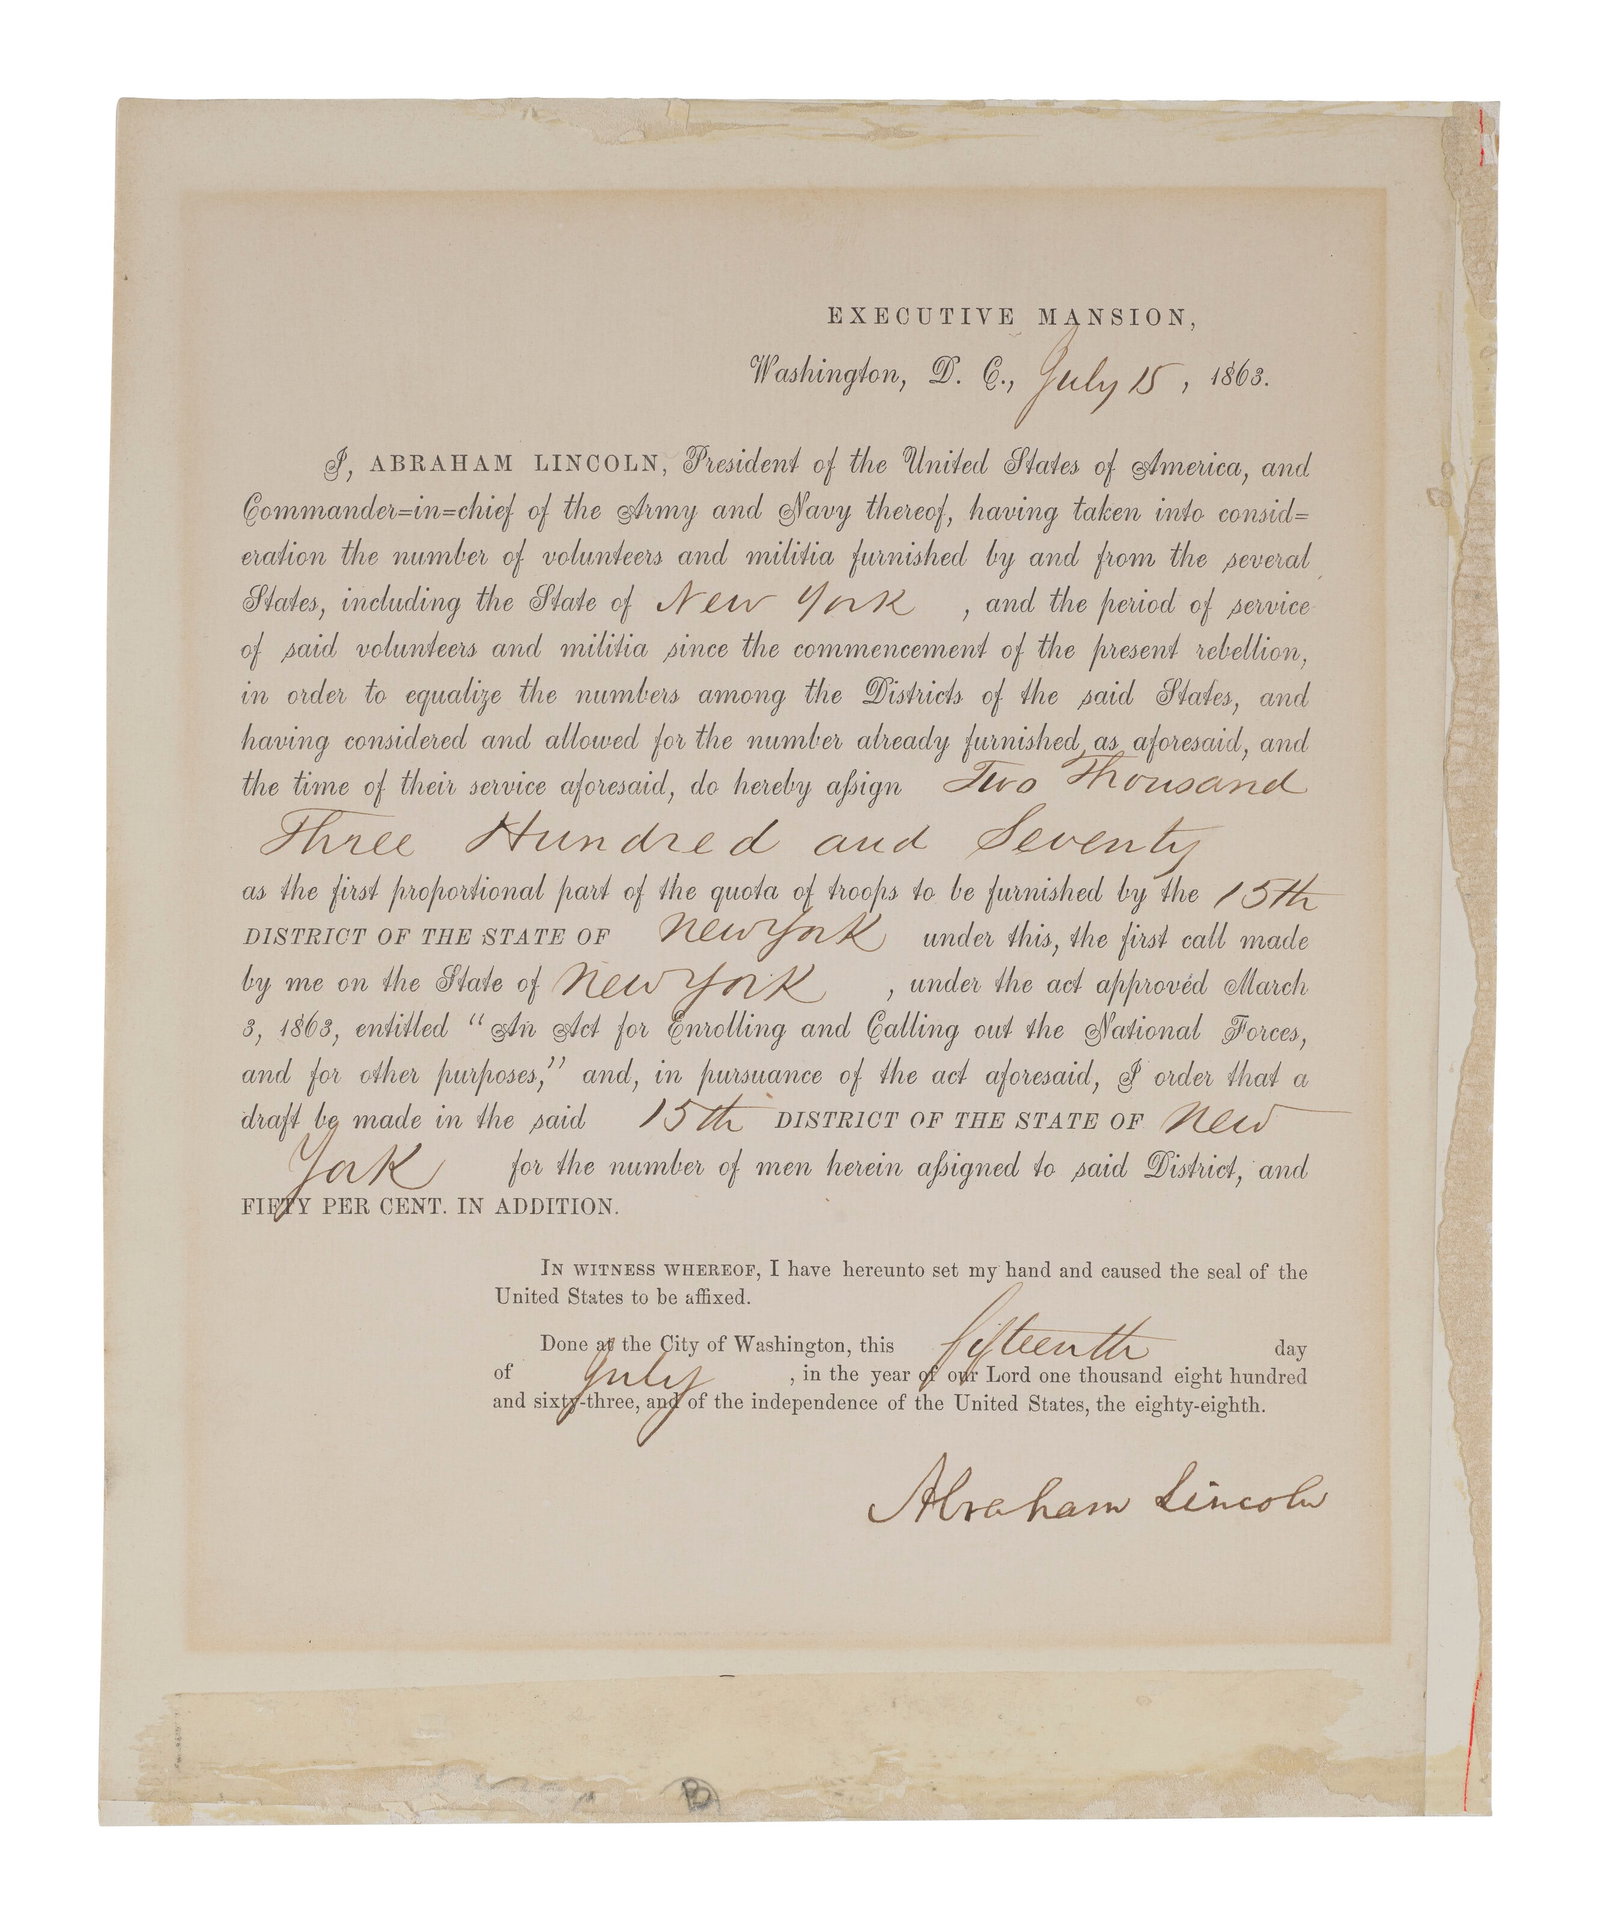 EXECUTIVE MANSION,
Washington, D. C., July 15, 1863.
I, ABRAHAM LINCOLN, President of the United States of America, and
Commander=in=chief of the Army and Navy thereof, having taken into consid=
eration the number of volunteers and militia furnished by and from the several
States, including the State of New York, and the period of service
of said volunteers and militia since the commencement of the present rebellion,
in order to equalize the numbers among the Districts of the said States, and
having considered and allowed for the number already furnished as aforesaid, and
the time of their service aforesaid, do hereby aſsign Two Thousand
Three Hundred and Seventy
as the first proportional part of the quota of troops to be furnished by the 15th
DISTRICT OF THE STATE OF New York under this, the first call made
by me on the State of New York, under the act approved March
3, 1863, entitled “An Act for Enrolling and Calling out the National Forces,
and for other purposes,” and, in pursuance of the act aforesaid, I order that a
draft be made in the said 15th DISTRICT OF THE STATE OF New
York for the number of men herein aſsigned to said District, and
FIFTY PER CENT. IN ADDITION.
IN WITNESS WHEREOF, I have hereunto set my hand and caused the seal of the
United States to be affixed.
Done at the City of Washington, this fifteenth day
of July, in the year of our Lord one thousand eight hundred
and sixty-three, and of the independence of the United States, the eighty-eighth.
Abraham Lincoln
B